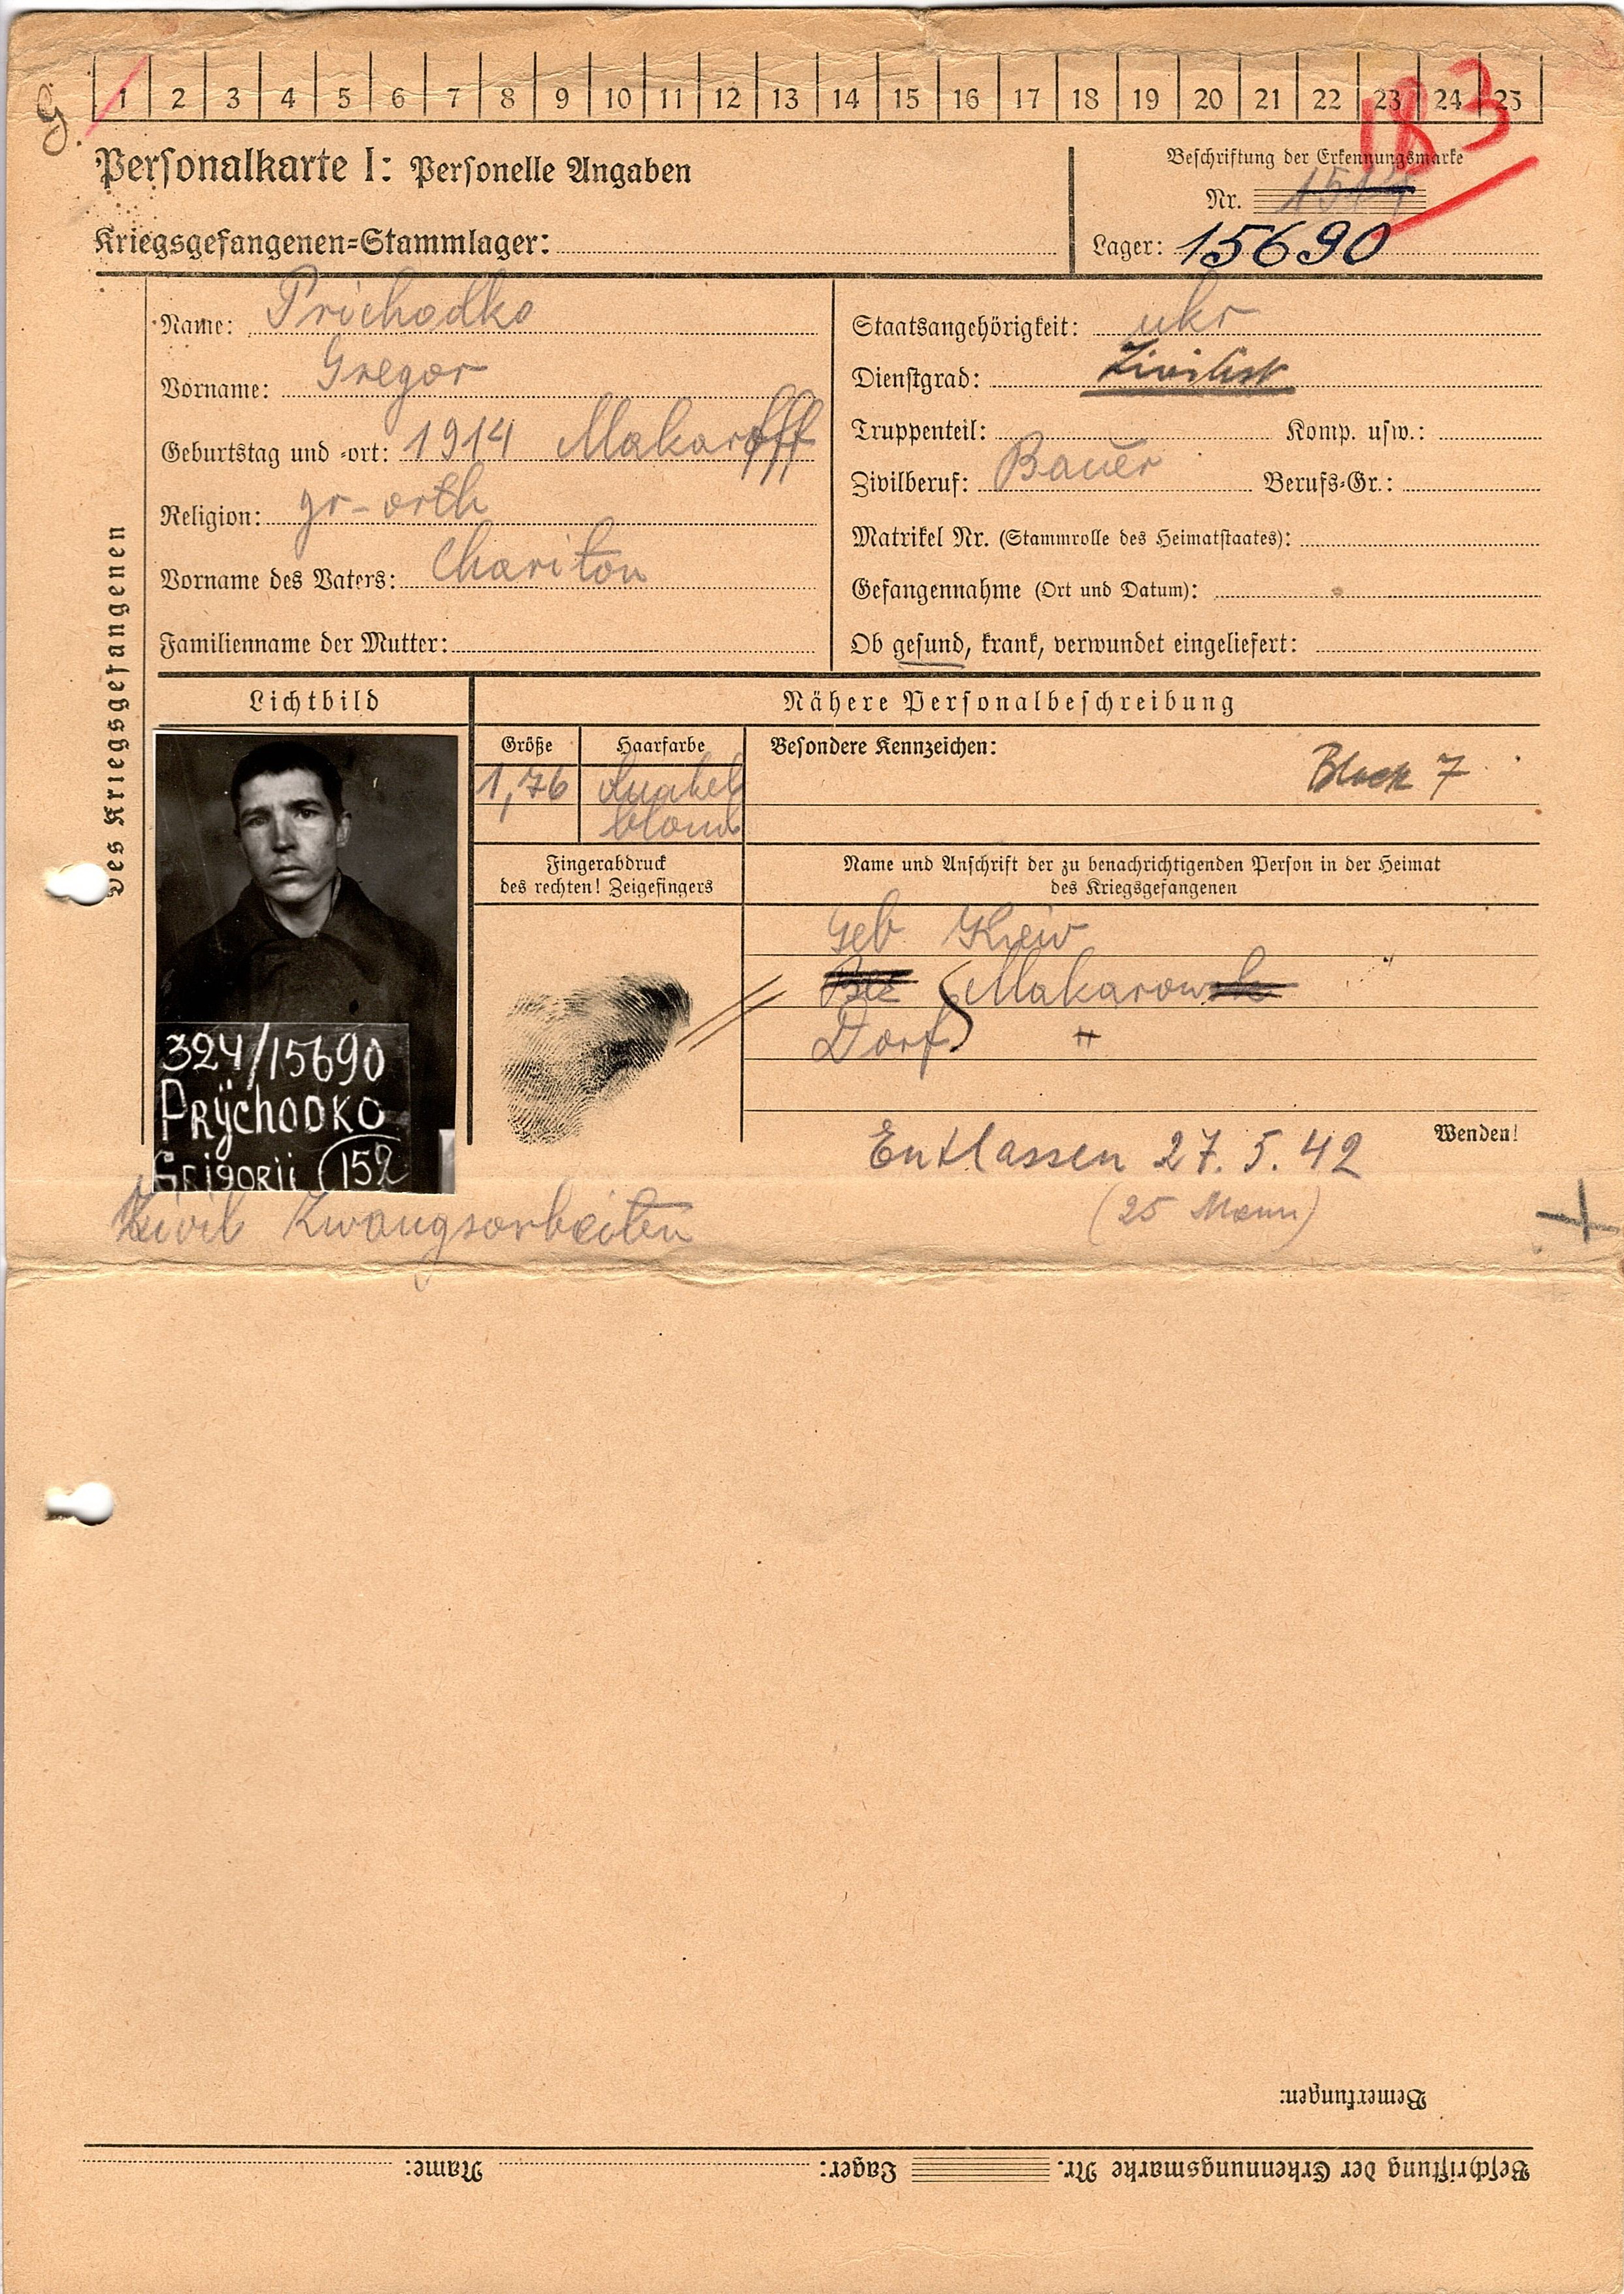 G.
1 2 3 4 5 6 7 8 9 10 11 12 13 14 15 16 17 18 19 20 21 22 23 24 25
183
Personalkarte I: Personelle Angaben
Beschriftung der Erkennungsmarke
Nr.
Kriegsgefangenen=Stammlager:
Lager: 15690
des Kriegsgefangenen
Name: Prichodko
Vorname: Gregor
Geburtstag und =ort: 1914 Makaroff
Religion: gr-orth
Vorname des Vaters: Chariton
Familienname der Mutter:
Staatsangehörigkeit: ukr
Dienstgrad: Zivilist
Truppenteil: Komp. usw.:
Zivilberuf: Bauer Berufs=Gr.:
Matrikel Nr. (Stammrolle des Heimatstaates):
Gefangennahme (Ort und Datum):
Ob gesund, krank, verwundet eingeliefert:
Lichtbild
Nähere Personalbeschreibung
Größe Haarfarbe
1,76 dunkel
blond
Besondere Kennzeichen:
Block 7
Fingerabdruck
des rechten! Zeigefingers
Name und Anschrift der zu benachrichtigenden Person in der Heimat
des Kriegsgefangenen
Geb Kiew
Makarow
Dorf "
324/15690
PRÿCHODKO
GRIGORII 152
Wenden!
Entlassen 27.5.42
(25 Mann)
Zivil Zwangsarbeiten
Bemerkungen:
Beschriftung der Erkennungsmarke Nr. Lager: Name: